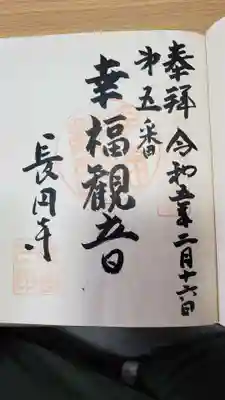 奉拝 令和五年二月十六日
第五番
幸福観音
長円寺